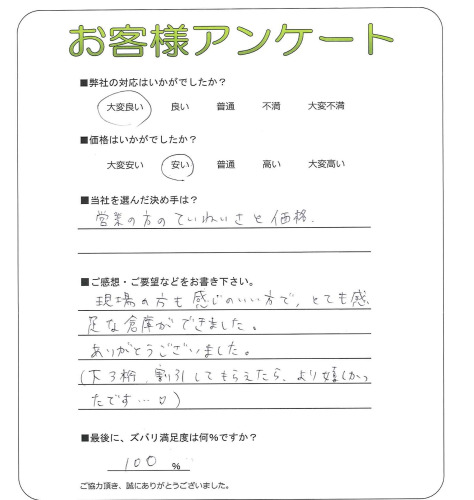 お客様アンケート
■弊社の対応はいかがでしたか？
大変良い 良い 普通 不満 大変不満
■価格はいかがでしたか？
大変安い 安い 普通 高い 大変高い
■当社を選んだ決め手は？
営業の方のていねいさと価格.
■ご感想・ご要望などをお書き下さい。
現場の方も感じのいい方で、とても感
足な倉庫ができました。
ありがとうございました。
(下3桁、割引してもらえたら、より嬉しかっ
たです…♡)
■最後に、ズバリ満足度は何％ですか？
100 %
ご協力頂き、誠にありがとうございました。